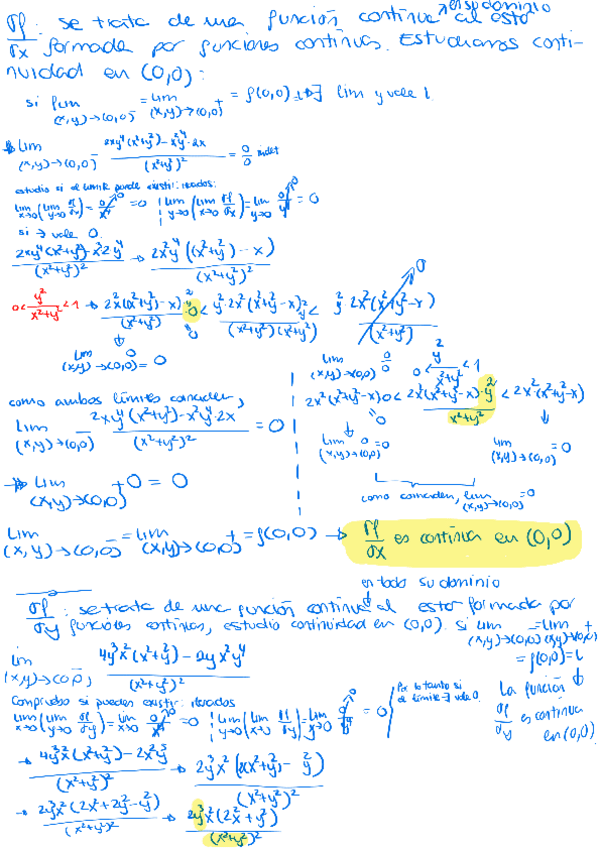 ∂f/∂x : se trata de una función continua en su dominio al estar
formada por funciones continuas. Estudiamos conti-
nuidad en (0,0) :
si lim (x,y)→(0,0)⁻ = lim (x,y)→(0,0)⁺ = f(0,0) ∃ lim y vale l
→ lim (x,y)→(0,0)⁻ 2xy⁴(x²+y²)-x²y⁴·2x / (x²+y²)² = 0/0 indet
estudio si el límite puede existir: iterados:
lim x→0 (lim y→0 ∂f/∂x) = 0/x⁴ = 0 lim y→0 (lim x→0 ∂f/∂x) = lim y→0 0/y⁴ = 0
si ∃ vale 0.
2xy⁴(x²+y²)-x²·2y⁴ / (x²+y²)² → 2x²y⁴((x²+y²)-x) / (x²+y²)²
0 < y²/(x²+y²) < 1 → 2x²(x²+y²)-x)·0 / (x²+y²) < y²·2x²(x²+y²-x)y² / (x²+y²)(x²+y²) < y²·2x²(x²+y²-x) / (x²+y²) → 0
lim (x,y)→(0,0) 0 = 0
lim (x,y)→(0,0) 0/0 0 < y²/(x²+y²) < 1
2x²(x²+y²-x)·0 < 2x²(x²+y²-x)·y² / x²+y² < 2x²(x²+y²-x)
lim (x,y)→(0,0) 0 = 0 lim (x,y)→(0,0) = 0
como coinciden, lim (x,y)→(0,0) = 0
como ambos límites coinciden,
lim (x,y)→(0,0) 2xy⁴(x²+y²)-x²y⁴·2x / (x²+y²)² = 0
→ lim (x,y)→(0,0)⁺ 0 = 0
lim (x,y)→(0,0)⁻ = lim (x,y)→(0,0)⁺ = f(0,0) → ∂f/∂x es continua en (0,0)
en todo su dominio
∂f/∂y : se trata de una función continua al estar formada por
funciones continuas, estudio continuidad en (0,0). si lim (x,y)→(0,0)⁻ = lim (x,y)→(0,0)⁺
= f(0,0) = L
lim (x,y)→(0,0)⁻ 4y³x²(x²+y²)-2yx²y⁴ / (x²+y²)²
La función ∂f/∂y es continua en (0,0)
Comprueba si pueden existir: iterados
lim x→0 (lim y→0 ∂f/∂y) = lim x→0 0/x⁴ = 0 lim y→0 (lim x→0 ∂f/∂y) = lim y→0 0/y⁴ = 0
Por lo tanto si el límite ∃ vale 0.
→ 4y³x²(x²+y²)-2x²y⁵ / (x²+y²)² → 2y³x²(2(x²+y²)-y²) / (x²+y²)²
→ 2y³x²(2x²+2y²-y²) / (x²+y²)² → 2y³x²(2x²+y²) / (x²+y²)²